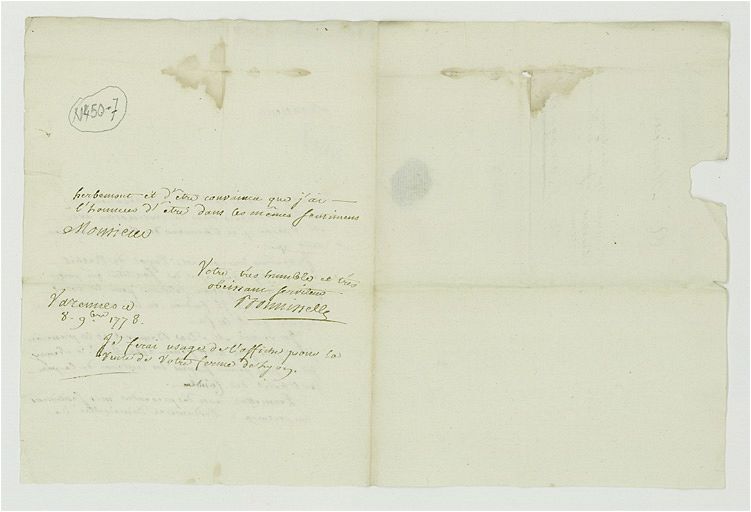 N450-7
herbemont et d'être convaincu que j'ai
l'honneur d'être dans les mêmes sentimens
Monsieur
Votre très humble et très
obeissant serviteur
Varennes
8. 9bre 1778.
Je ferai usage de l'affiche pour la
de votre ferme de